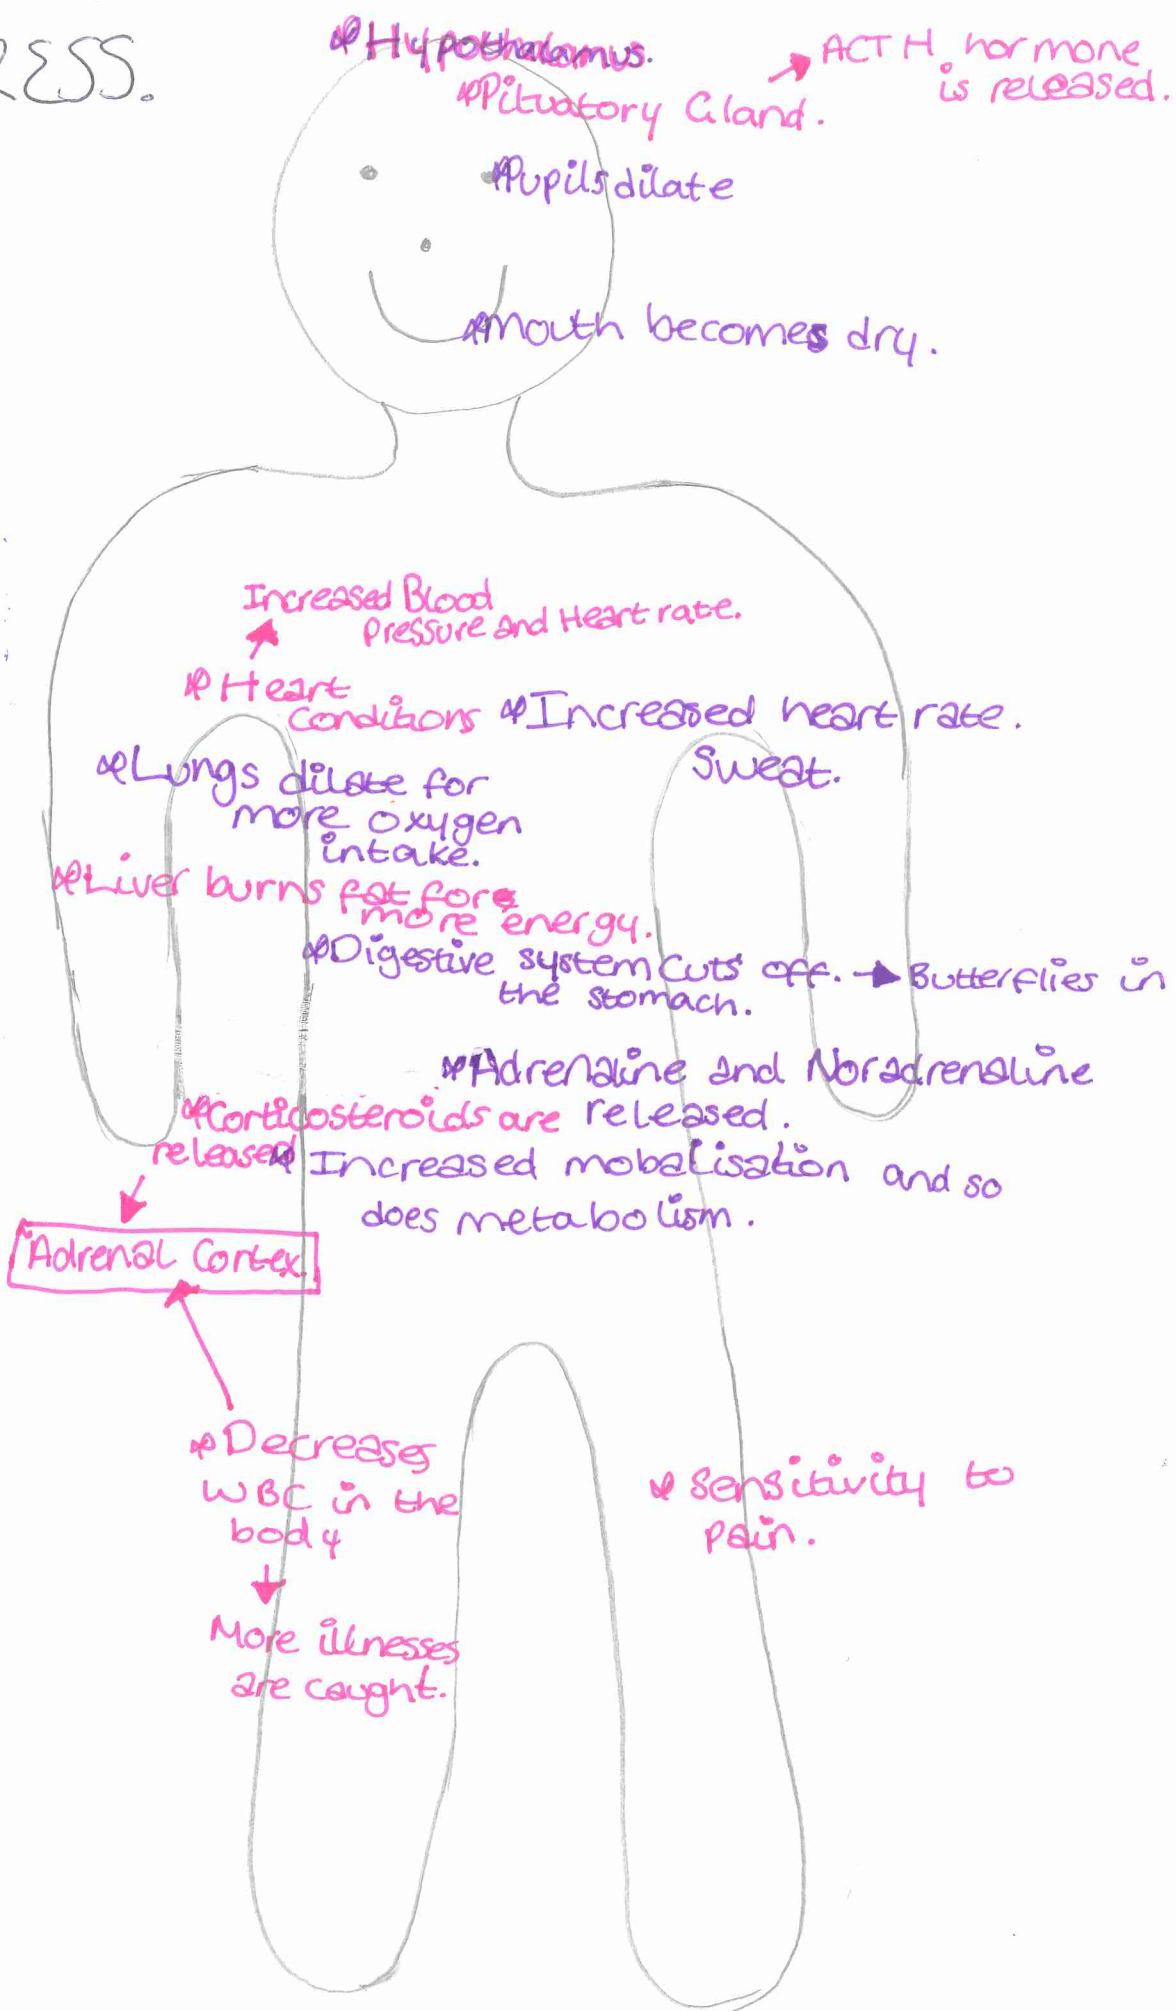 RESS.
*Hypothalamus.
*Pituatory Gland.
ACTH hormone
is released.
*Pupils dilate
*Mouth becomes dry.
Increased Blood
Pressure and Heart rate.
*Heart
Conditions
*Increased heart rate.
Sweat.
*Lungs dilate for
more oxygen
intake.
*Liver burns fat for
more energy.
*Digestive system cuts off. → Butterflies in
the stomach.
*Adrenaline and Noradrenaline
released.
*Corticosteroids are
released
*Increased mobalisation and so
does metabolism.
Adrenal Cortex
*Decreases
WBC in the
body
More illnesses
are caught.
*Sensitivity to
pain.